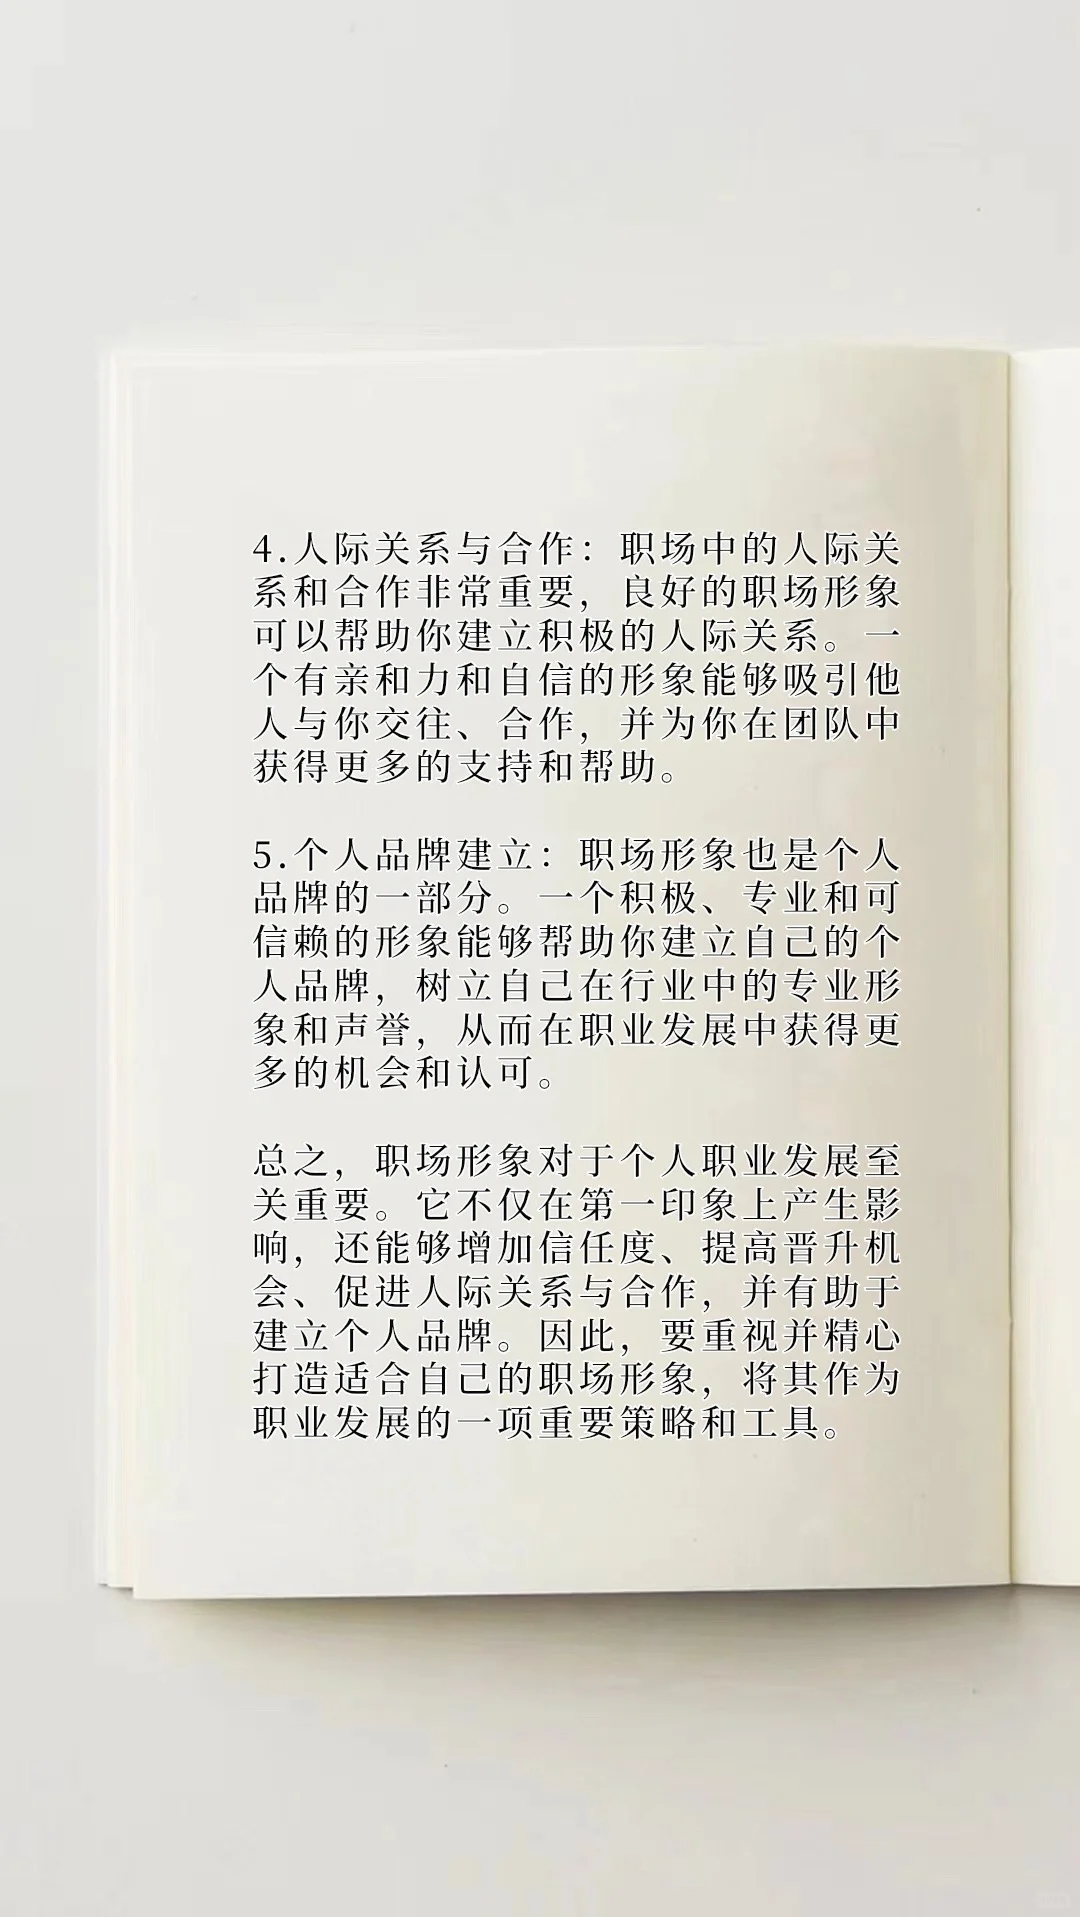 4.人际关系与合作：职场中的人际关
系和合作非常重要，良好的职场形象
可以帮助你建立积极的人际关系。一
个有亲和力和自信的形象能够吸引他
人与你交往、合作，并为你在团队中
获得更多的支持和帮助。
5.个人品牌建立：职场形象也是个人
品牌的一部分。一个积极、专业和可
信赖的形象能够帮助你建立自己的个
人品牌，树立自己在行业中的专业形
象和声誉，从而在职业发展中获得更
多的机会和认可。
总之，职场形象对于个人职业发展至
关重要。它不仅在第一印象上产生影
响，还能够增加信任度、提高晋升机
会、促进人际关系与合作，并有助于
建立个人品牌。因此，要重视并精心
打造适合自己的职场形象，将其作为
职业发展的一项重要策略和工具。